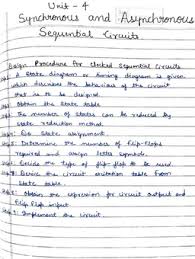 Unit - 4
Synchronous and Asynchronous
Sequential Circuits
Design Procedure for clocked Sequential Circuits
A State diagram or timing diagram is given
which describes the behaviour of the circuit
that is to be design.
Obtain the State table
The number of states can be reduced by
State reduction method.
Do State assignment.
Determine the number of flip-flops
required and assign letter symbols.
Decide the type of flip-flop to be used.
Derive the circuit excitation table from
State table.
Obtain the expression for circuit output and
flip flop input
Implement the circuit.